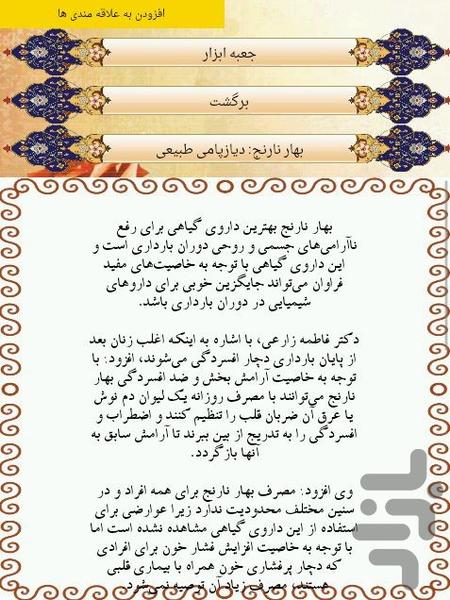 افزودن به علاقه مندی ها
جعبه ابزار
برگشت
بهار نارنج: دیازپامی طبیعی
بهار نارنج بهترین داروی گیاهی برای رفع
ناآرامی‌های جسمی و روحی دوران بارداری است و
این داروی گیاهی با توجه به خاصیت‌های مفید
فراوان می‌تواند جایگزین خوبی برای داروهای
شیمیایی در دوران بارداری باشد.
دکتر فاطمه زارعی، با اشاره به اینکه اغلب زنان بعد
از پایان بارداری دچار افسردگی می‌شوند، افزود: با
توجه به خاصیت آرامش بخش و ضد افسردگی بهار
نارنج می‌توانند با مصرف روزانه یک لیوان دم نوش
یا عرق آن ضربان قلب را تنظیم کنند و اضطراب و
افسردگی را به تدریج از بین ببرند تا آرامش سابق به
آنها بازگردد.
وی افزود: مصرف بهار نارنج برای همه افراد و در
سنین مختلف محدودیت ندارد زیرا عوارضی برای
استفاده از این داروی گیاهی مشاهده نشده است اما
با توجه به خاصیت افزایش فشار خون برای افرادی
که دچار پرفشاری خون همراه با بیماری قلبی
هستند، مصرف زیاد آن توصیه نمی‌شود.
بازار